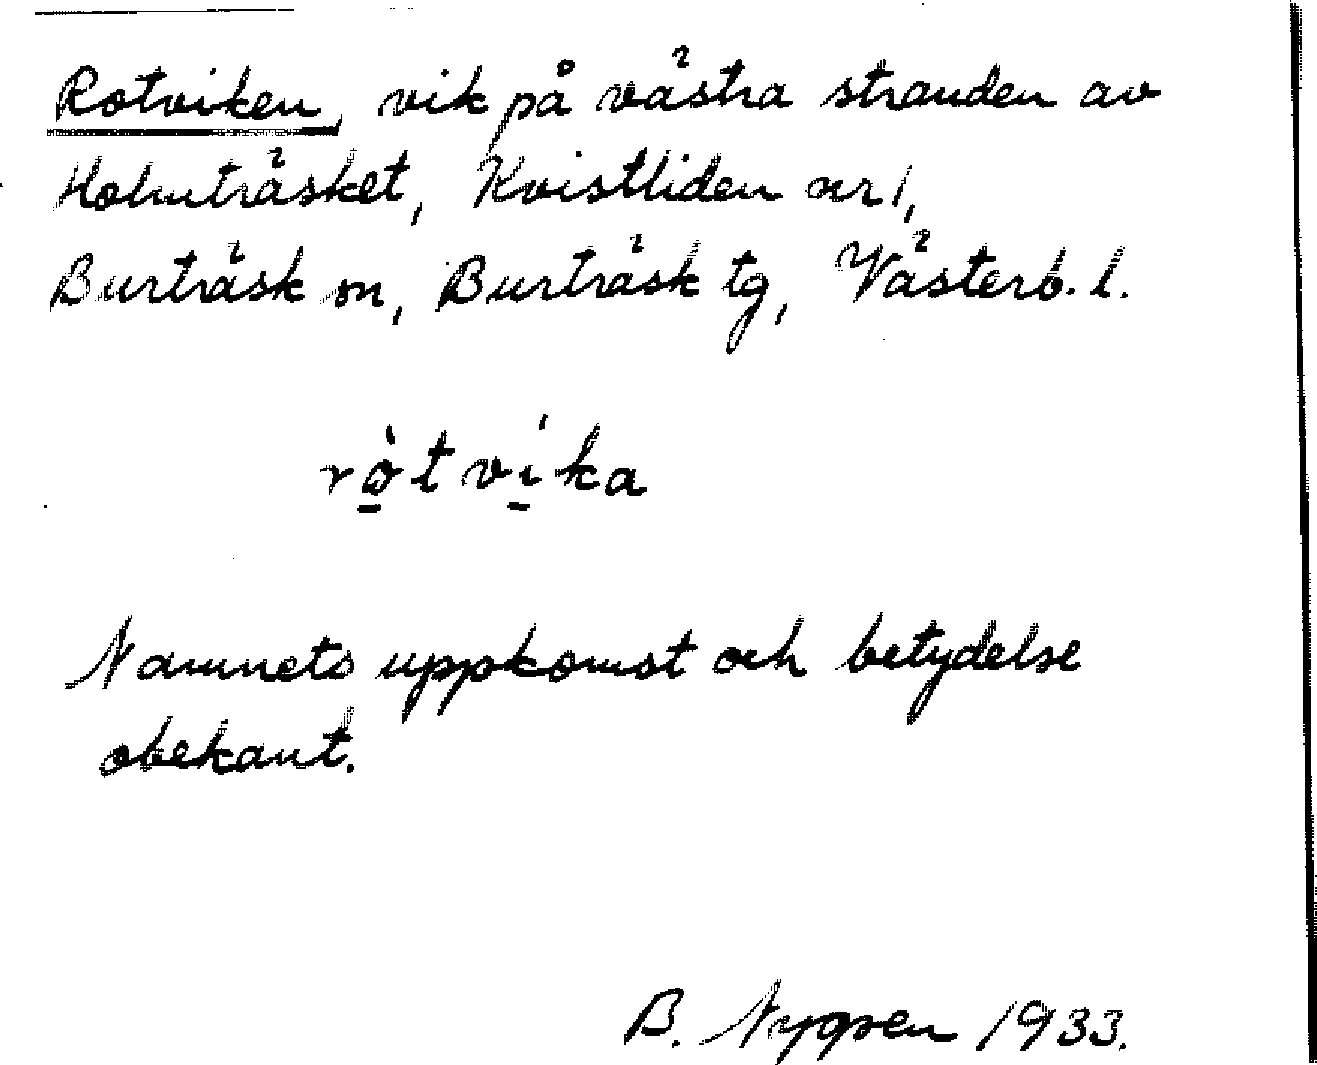 Rotviken, vik på västra stranden av
Holmträsket, Kvistliden nr 1,
Burträsk sn, Burträsk tg, Västerb. l.
ròtvíka
Namnets uppkomst och betydelse
obekant.
B. Nygren 1933.